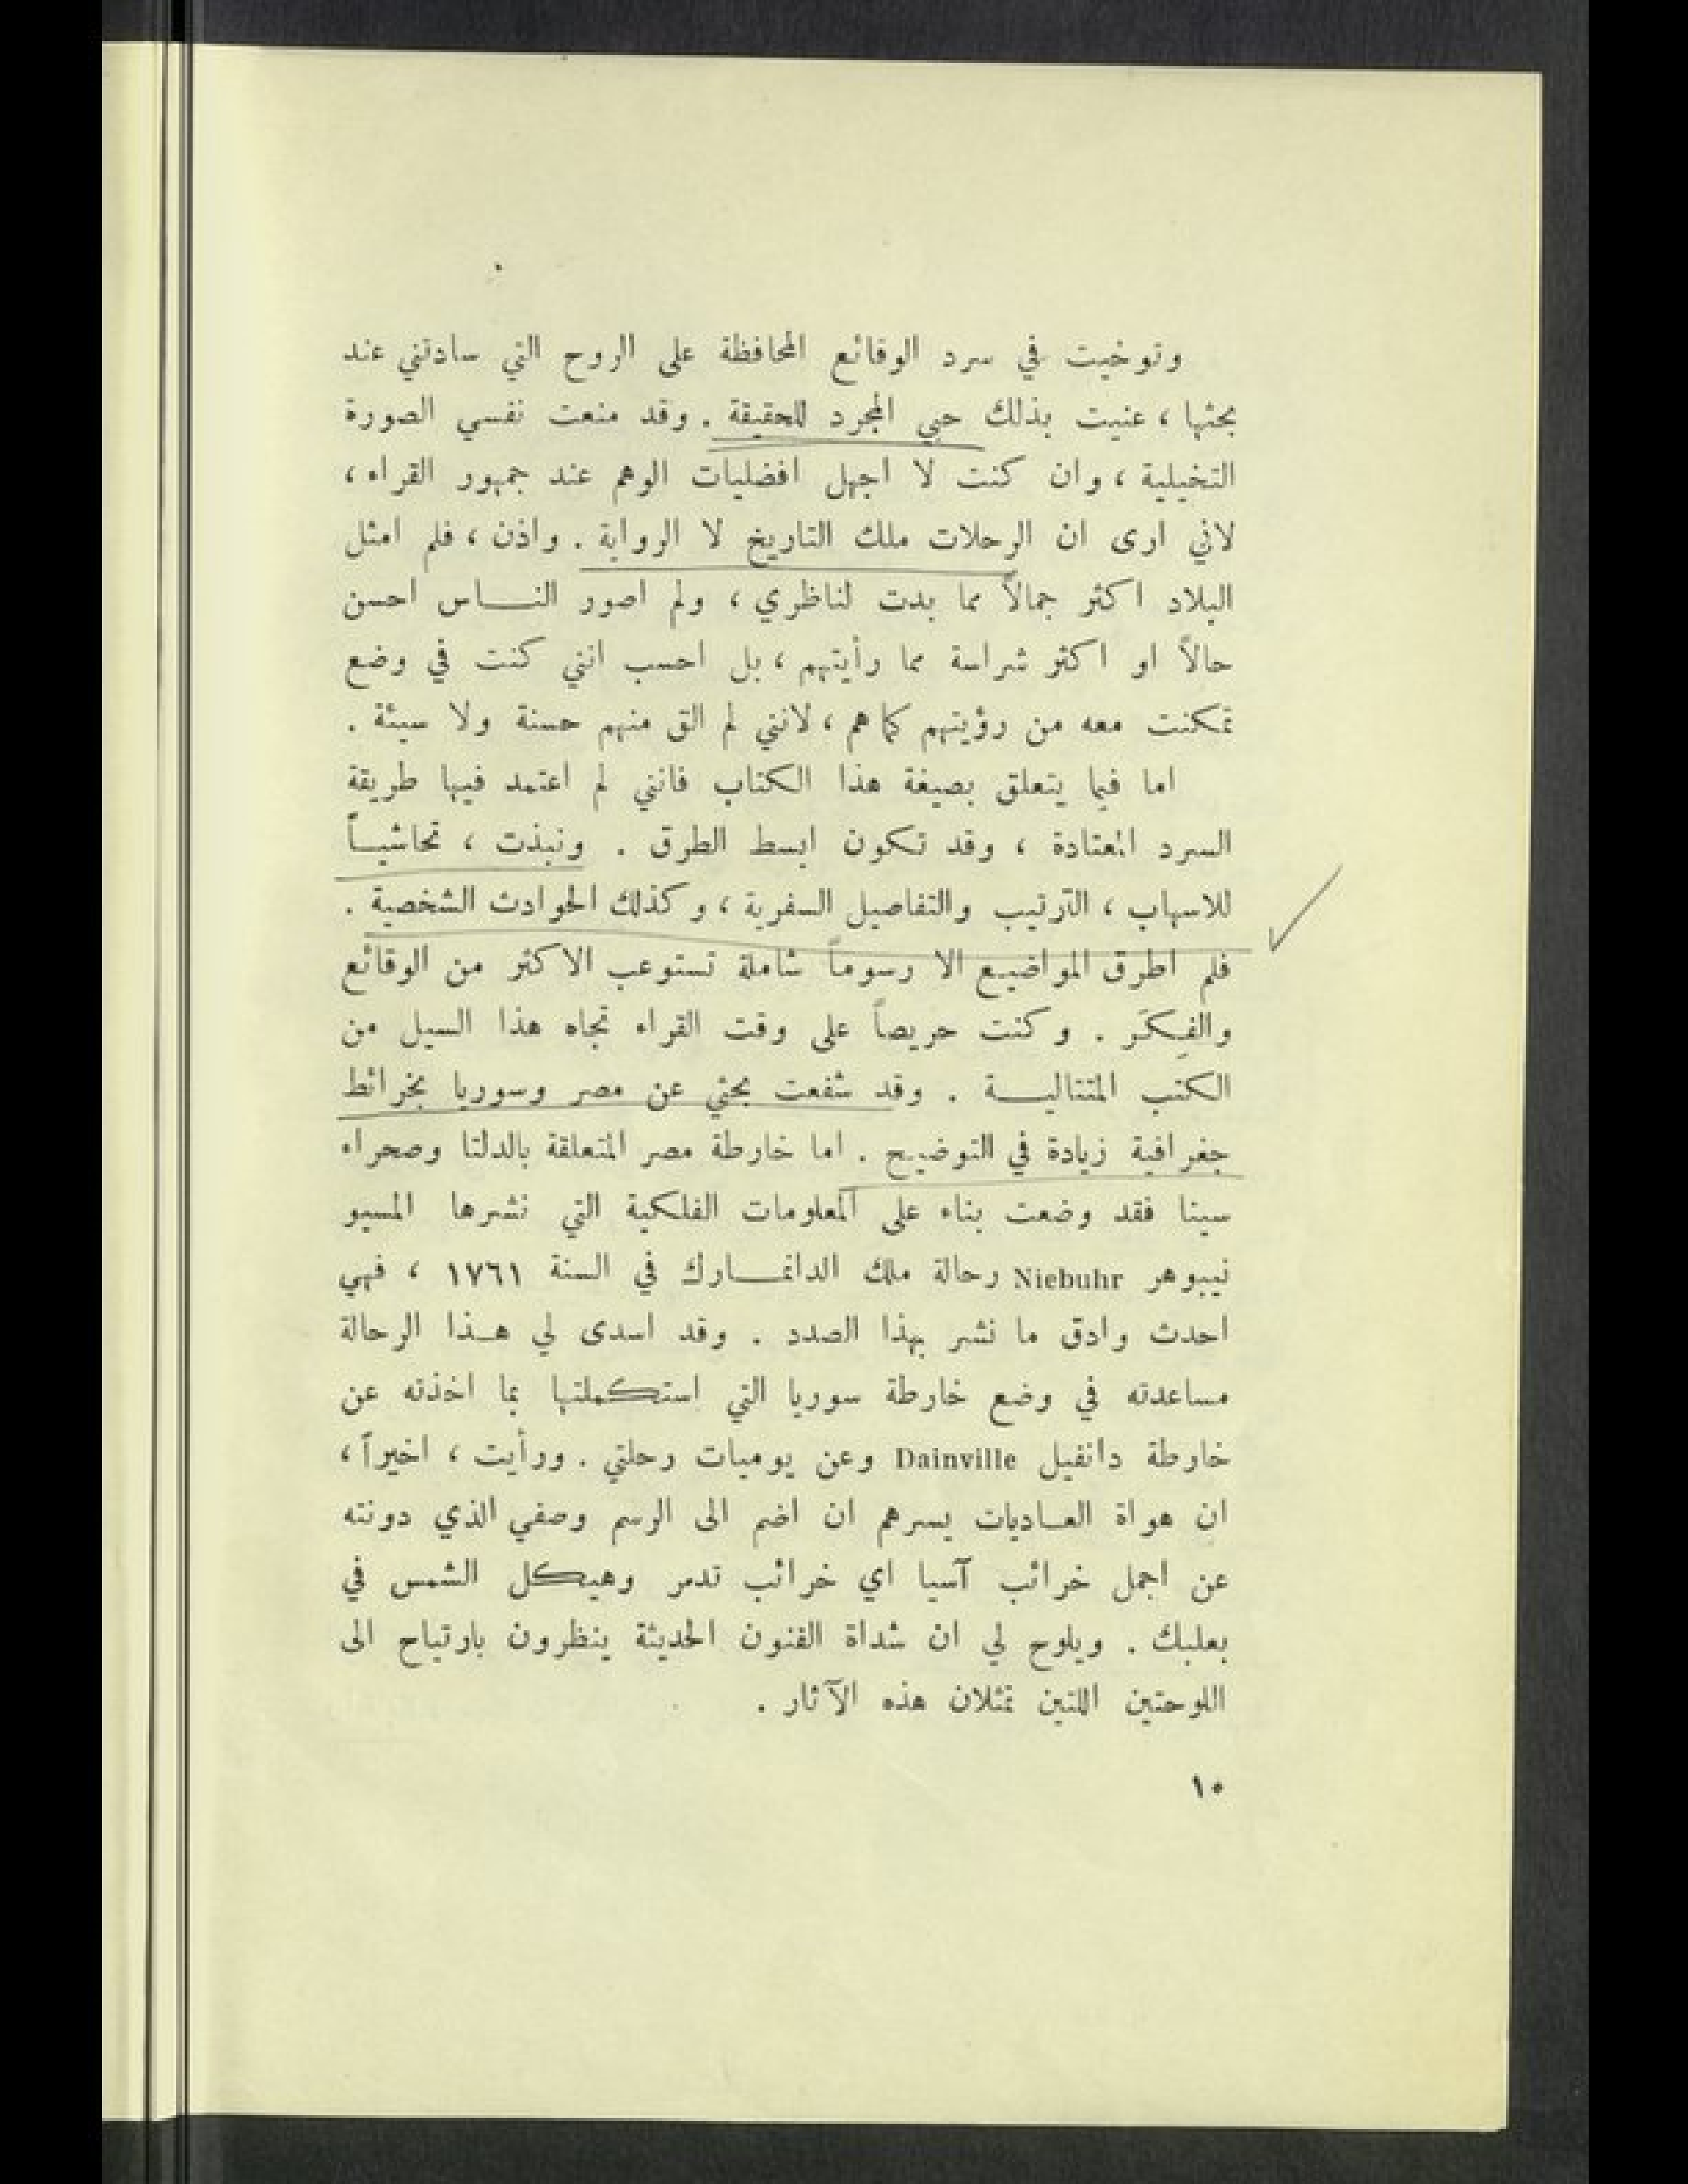 وتوخيت في سرد الوقائع المحافظة على الروح التي سادتني عند
بحثها ، عنيت بذلك حبي المجرد للحقيقة . وقد منعت نفسي الصورة
التخيلية ، وان كنت لا اجهل افضليات الوهم عند جمهور القراء ،
لاني ارى ان الرحلات ملك التاريخ لا الرواية . واذن ، فلم امثل
البلاد اكثر جمالاً مما بدت لناظري ، ولم اصور النـــاس احسن
حالاً او اكثر شراسة مما رأيتهم ، بل احسب انني كنت في وضع
تمكنت معه من رؤيتهم كما هم ، لانني لم الق منهم حسنة ولا سيئة .
اما فيما يتعلق بصيغة هذا الكتاب فانني لم اعتمد فيها طريقة
السرد المعتادة ، وقد تكون ابسط الطرق . ونبذت ، تحاشيـاً
للاسهاب ، الترتيب والتفاصيل السفرية ، وكذلك الحوادث الشخصية .
فلم اطرق المواضيع الا رسوماً شاملة تستوعب الاكثر من الوقائع
والفِكَر . وكنت حريصاً على وقت القراء تجاه هذا السيل من
الكتب المتتاليـــة . وقد شفعت بحثي عن مصر وسوريا بخرائط
جغرافية زيادة في التوضيح . اما خارطة مصر المتعلقة بالدلتا وصحراء
سينا فقد وضعت بناء على المعلومات الفلكية التي نشرها المسيو
نيبوهر Niebuhr رحالة ملك الدانمـــارك في السنة ١٧٦١ ، فهي
احدث وادق ما نشر بهذا الصدد . وقد اسدى لي هـذا الرحالة
مساعدته في وضع خارطة سوريا التي استكملتها بما اخذته عن
خارطة دانفيل Dainville وعن يوميات رحلتي . ورأيت ، اخيراً ،
ان هواة العـاديات يسرهم ان اضم الى الرسم وصفي الذي دونته
عن اجمل خرائب آسيا اي خرائب تدمر وهيكل الشمس في
بعلبك . ويلوح لي ان شداة الفنون الحديثة ينظرون بارتياح الى
اللوحتين اللتين تمثلان هذه الآثار .
١٠